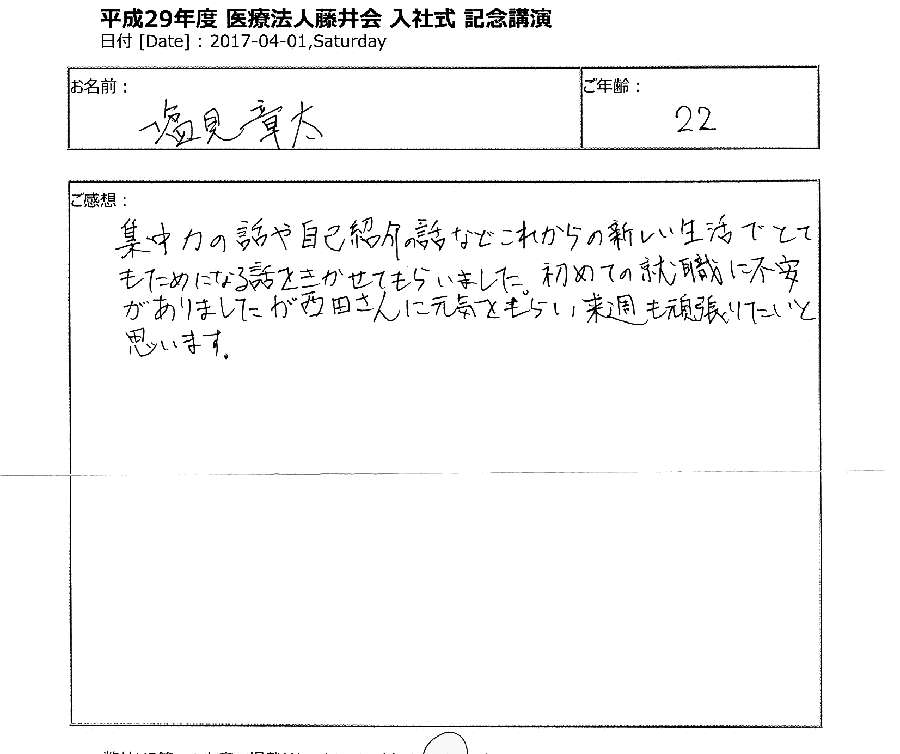 平成29年度 医療法人藤井会 入社式 記念講演
日付 [Date] : 2017-04-01,Saturday
お名前：
塩見章太
ご年齢：
22
ご感想：
集中力の話や自己紹介の話などこれからの新しい生活でとて
もためになる話をきかせてもらいました。初めての就職に不安
がありましたが西田さんに元気をもらい来週も頑張りたいと
思います。